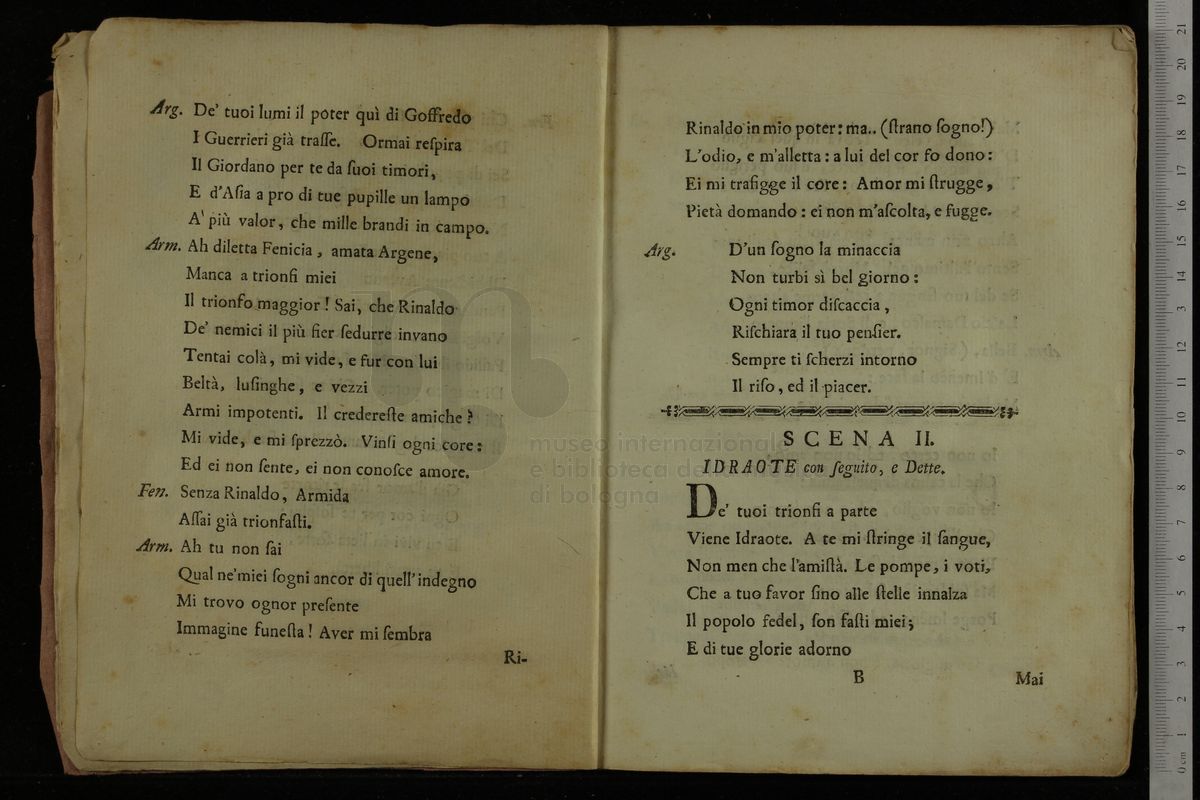 Arg. De' tuoi lumi il poter quì di Goffredo
I Guerrieri già traſſe. Ormai reſpira
Il Giordano per te da ſuoi timori,
E d'Aſia a pro di tue pupille un lampo
A' più valor, che mille brandi in campo.
Arm. Ah diletta Fenicia, amata Argene,
Manca a trionfi miei
Il trionfo maggior! Sai, che Rinaldo
De' nemici il più fier ſedurre invano
Tentai colà, mi vide, e fur con lui
Beltà, luſinghe, e vezzi
Armi impotenti. Il credereſte amiche?
Mi vide, e mi ſprezzò. Vinſi ogni core:
Ed ei non ſente, ei non conoſce amore.
Fen. Senza Rinaldo, Armida
Aſſai già trionfaſti.
Arm. Ah tu non ſai
Qual ne'miei ſogni ancor di quell'indegno
Mi trovo ognor preſente
Immagine funeſta! Aver mi ſembra
Ri-
Rinaldo in mio poter: ma.. (ſtrano ſogno!)
L'odio, e m'alletta: a lui del cor fo dono:
Ei mi trafigge il core: Amor mi ſtrugge,
Pietà domando: ei non m'aſcolta, e fugge.
Arg. D'un ſogno la minaccia
Non turbi sì bel giorno:
Ogni timor diſcaccia,
Riſchiara il tuo penſier.
Sempre ti ſcherzi intorno
Il riſo, ed il piacer.
SCENA II.
IDRAOTE con ſeguito, e Dette.
De' tuoi trionfi a parte
Viene Idraote. A te mi ſtringe il ſangue,
Non men che l'amiſtà. Le pompe, i voti,
Che a tuo favor ſino alle ſtelle innalza
Il popolo fedel, ſon faſti miei;
E di tue glorie adorno
B
Mai
museo internazionale
e biblioteca de
di bologna
0 cm 1 2 3 4 5 6 7 8 9 10 11 12 13 14 15 16 17 18 19 20 21